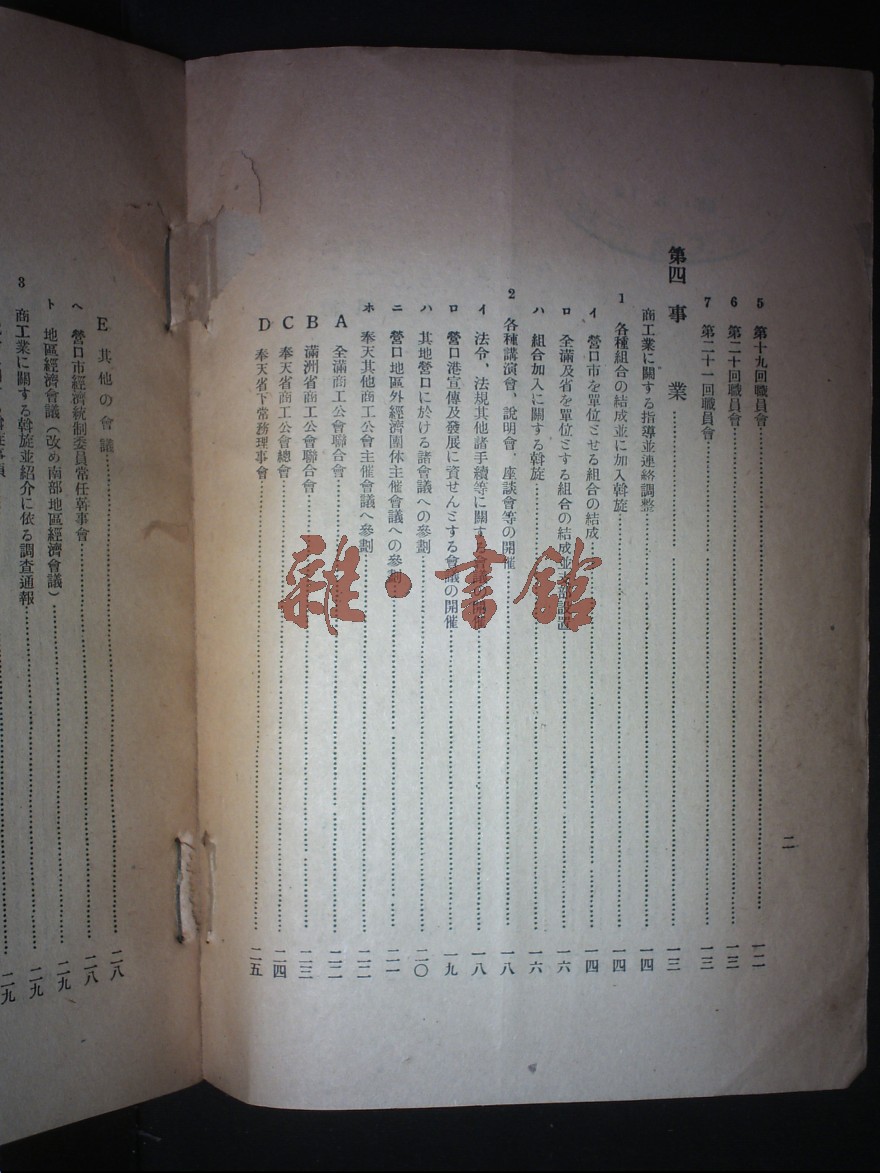 5 第十九回職員會……一二
6 第二十回職員會……一三
7 第二十一回職員會……一三
第四 事 業……一三
商工業に關する指導並連絡調整……一四
1 各種組合の結成並に加入斡旋……一四
イ 營口市を單位とせる組合の結成……一四
ロ 全滿及省を單位とする組合の結成並支部設置……一六
ハ 組合加入に關する斡旋……一六
2 各種講演會、說明會、座談會等の開催……一八
イ 法令、法規其他諸手續等に關する會議の開催……一八
ロ 營口港宣傳及發展に資せんとする會議の開催……一九
ハ 其地營口に於ける諸會議への參劃……二〇
ニ 營口地區外經濟團体主催會議への參劃……二一
ホ 奉天其他商工公會主催會議へ參劃……二二
A 全滿商工公會聯合會……二二
B 滿洲省商工公會聯合會……二三
C 奉天省商工公會總會……二四
D 奉天省下常務理事會……二五
二
E 其他の會議……二八
ヘ 營口市經濟統制委員常任幹事會……二八
ト 地區經濟會議(改め南部地區經濟會議)……二九
3 商工業に關する斡旋並紹介に依る調查通報……二九
二九
雜·書館